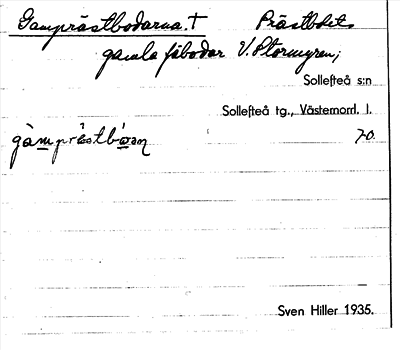 Gamprästbodarna. † Prästbolets
gamla fäbodar V. Stormyren;
Sollefteå s:n
Sollefteå tg., Västernorrl. l.
gàmpräs̀tbón 70
Sven Hiller 1935.